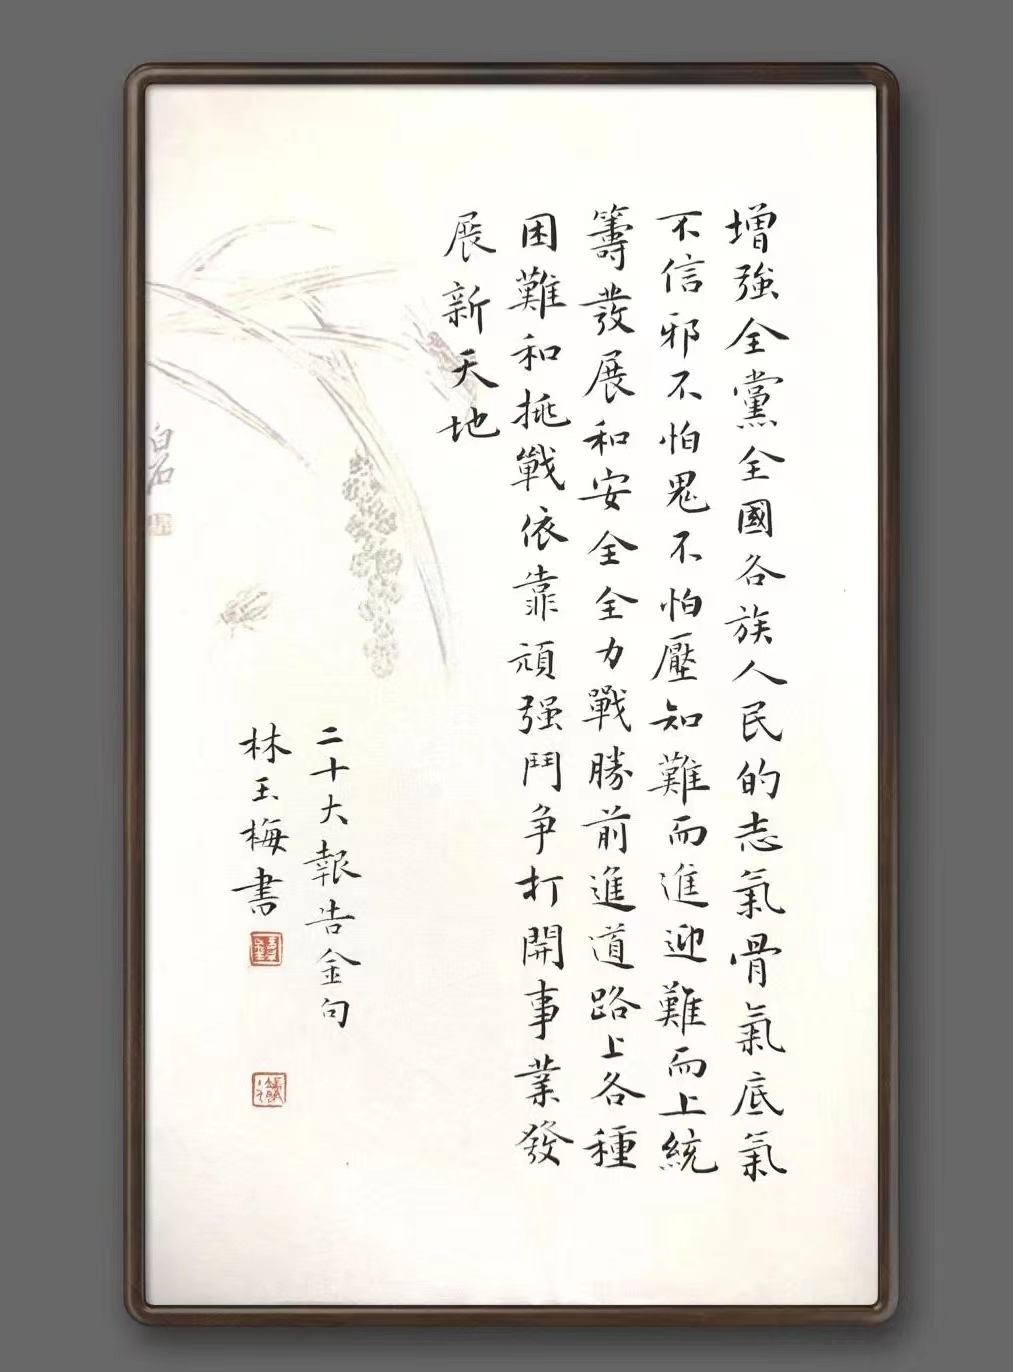 增強全黨全國各族人民的志氣骨氣底氣
不信邪不怕鬼不怕壓知難而進迎難而上統
籌發展和安全全力戰勝前進道路上各種
困難和挑戰依靠頑强鬥争打開事業發
展新天地
二十大報告金句
林玉梅書
白石